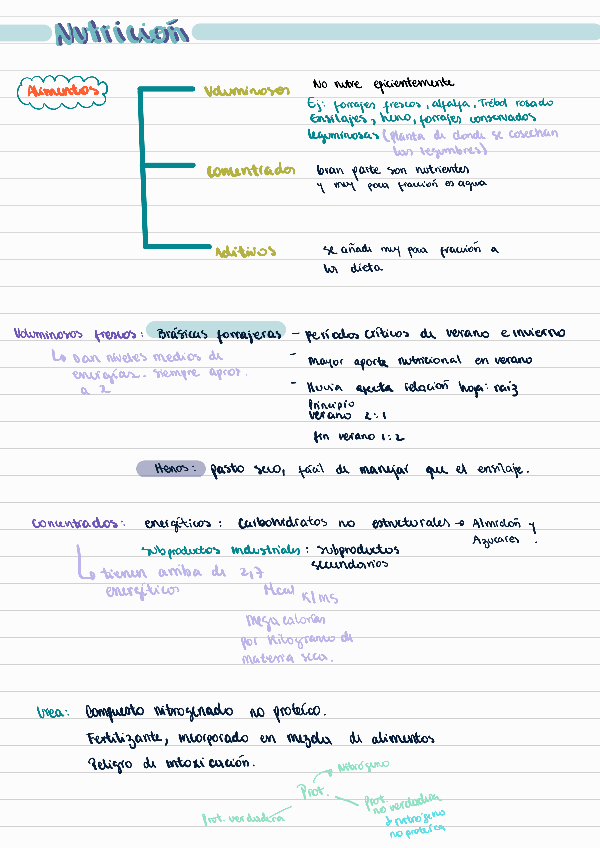 Nutrición
Alimentos
Voluminosos
No nutre eficientemente
Ej: forrajes frescos, alfalfa, Trébol rosado
Ensilajes, heno, forrajes conservados
leguminosas (planta de donde se cosechan
las legumbres)
Concentrados
Gran parte son nutrientes
y muy poca fracción es agua
Aditivos
Se añade muy poca fracción a
la dieta
Voluminosos frescos: Brásicas forrajeras - períodos críticos de verano e invierno
↳ Dan niveles medios de
energías. siempre aprox.
a 2
- Mayor aporte nutricional en verano
- lluvia afecta relación hoja: raíz
Principio
verano 2:1
fin verano 1:2
Henos: pasto seco, fácil de manejar que el ensilaje.
Concentrados: energéticos: Carbohidratos no estructurales → Almidón y
Azúcares.
subproductos industriales: subproductos
secundarios
↳ tienen arriba de 2,7
energéticos
Mcal K/ms
Mega calorías
por kilogramo de
materia seca.
Urea: Compuesto nitrogenado no proteico.
Fertilizante, incorporado en mezcla de alimentos
Peligro de intoxicación.
Nitrógeno
Prot.
Prot. verdadera
Prot.
no verdadera
↓ nitrógeno
no proteico